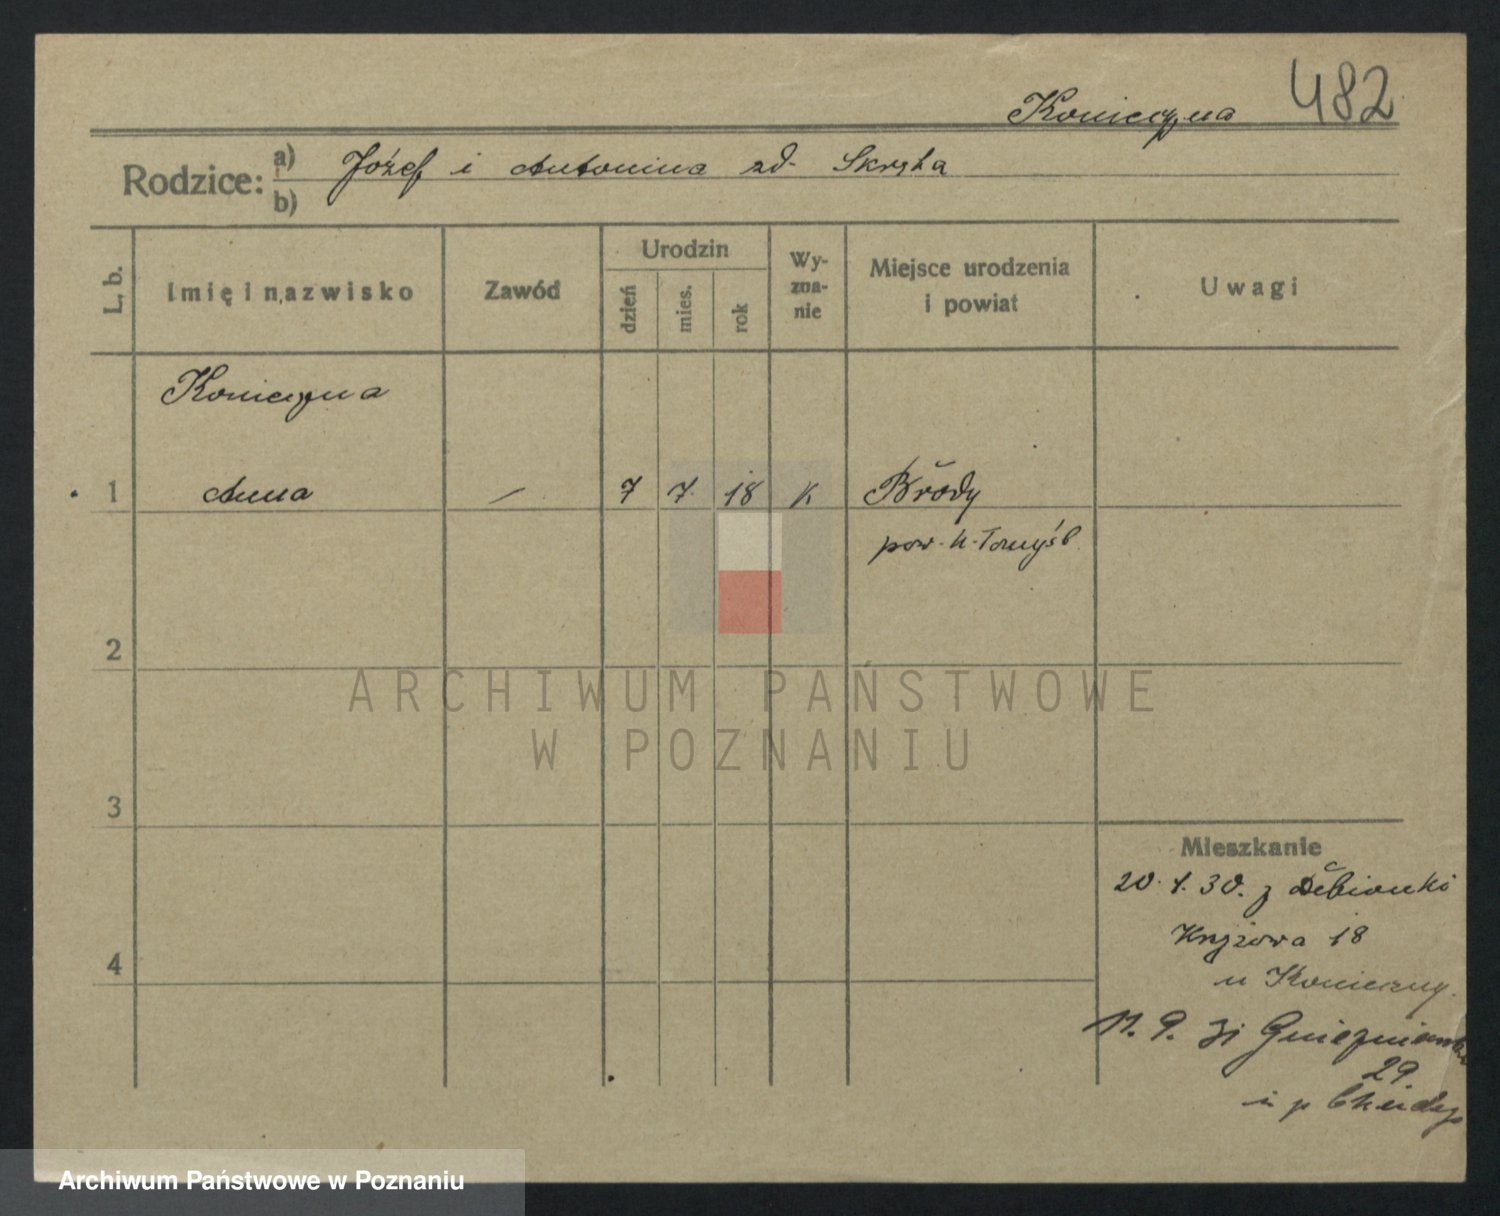 Konieczna 482
Rodzice: a) Józef i Antonina zd. Skrzta
b)
L. b.
Imię i nazwisko
Zawód
Urodzin
dzień
mies.
rok
Wy-
zna-
nie
Miejsce urodzenia
i powiat
Uwagi
Konieczna
1 Anna — 7 7. 18 k Brody
pow. N-Tomyśl
2
3
4
Mieszkanie
20. 1. 30. z Dębionki
Krzyżowa 18
u Konieczny.
11. 9. 31 Gnieźnieńska
29.
u p
ARCHIWUM PAŃSTWOWE
W POZNANIU
Archiwum Państwowe w Poznaniu